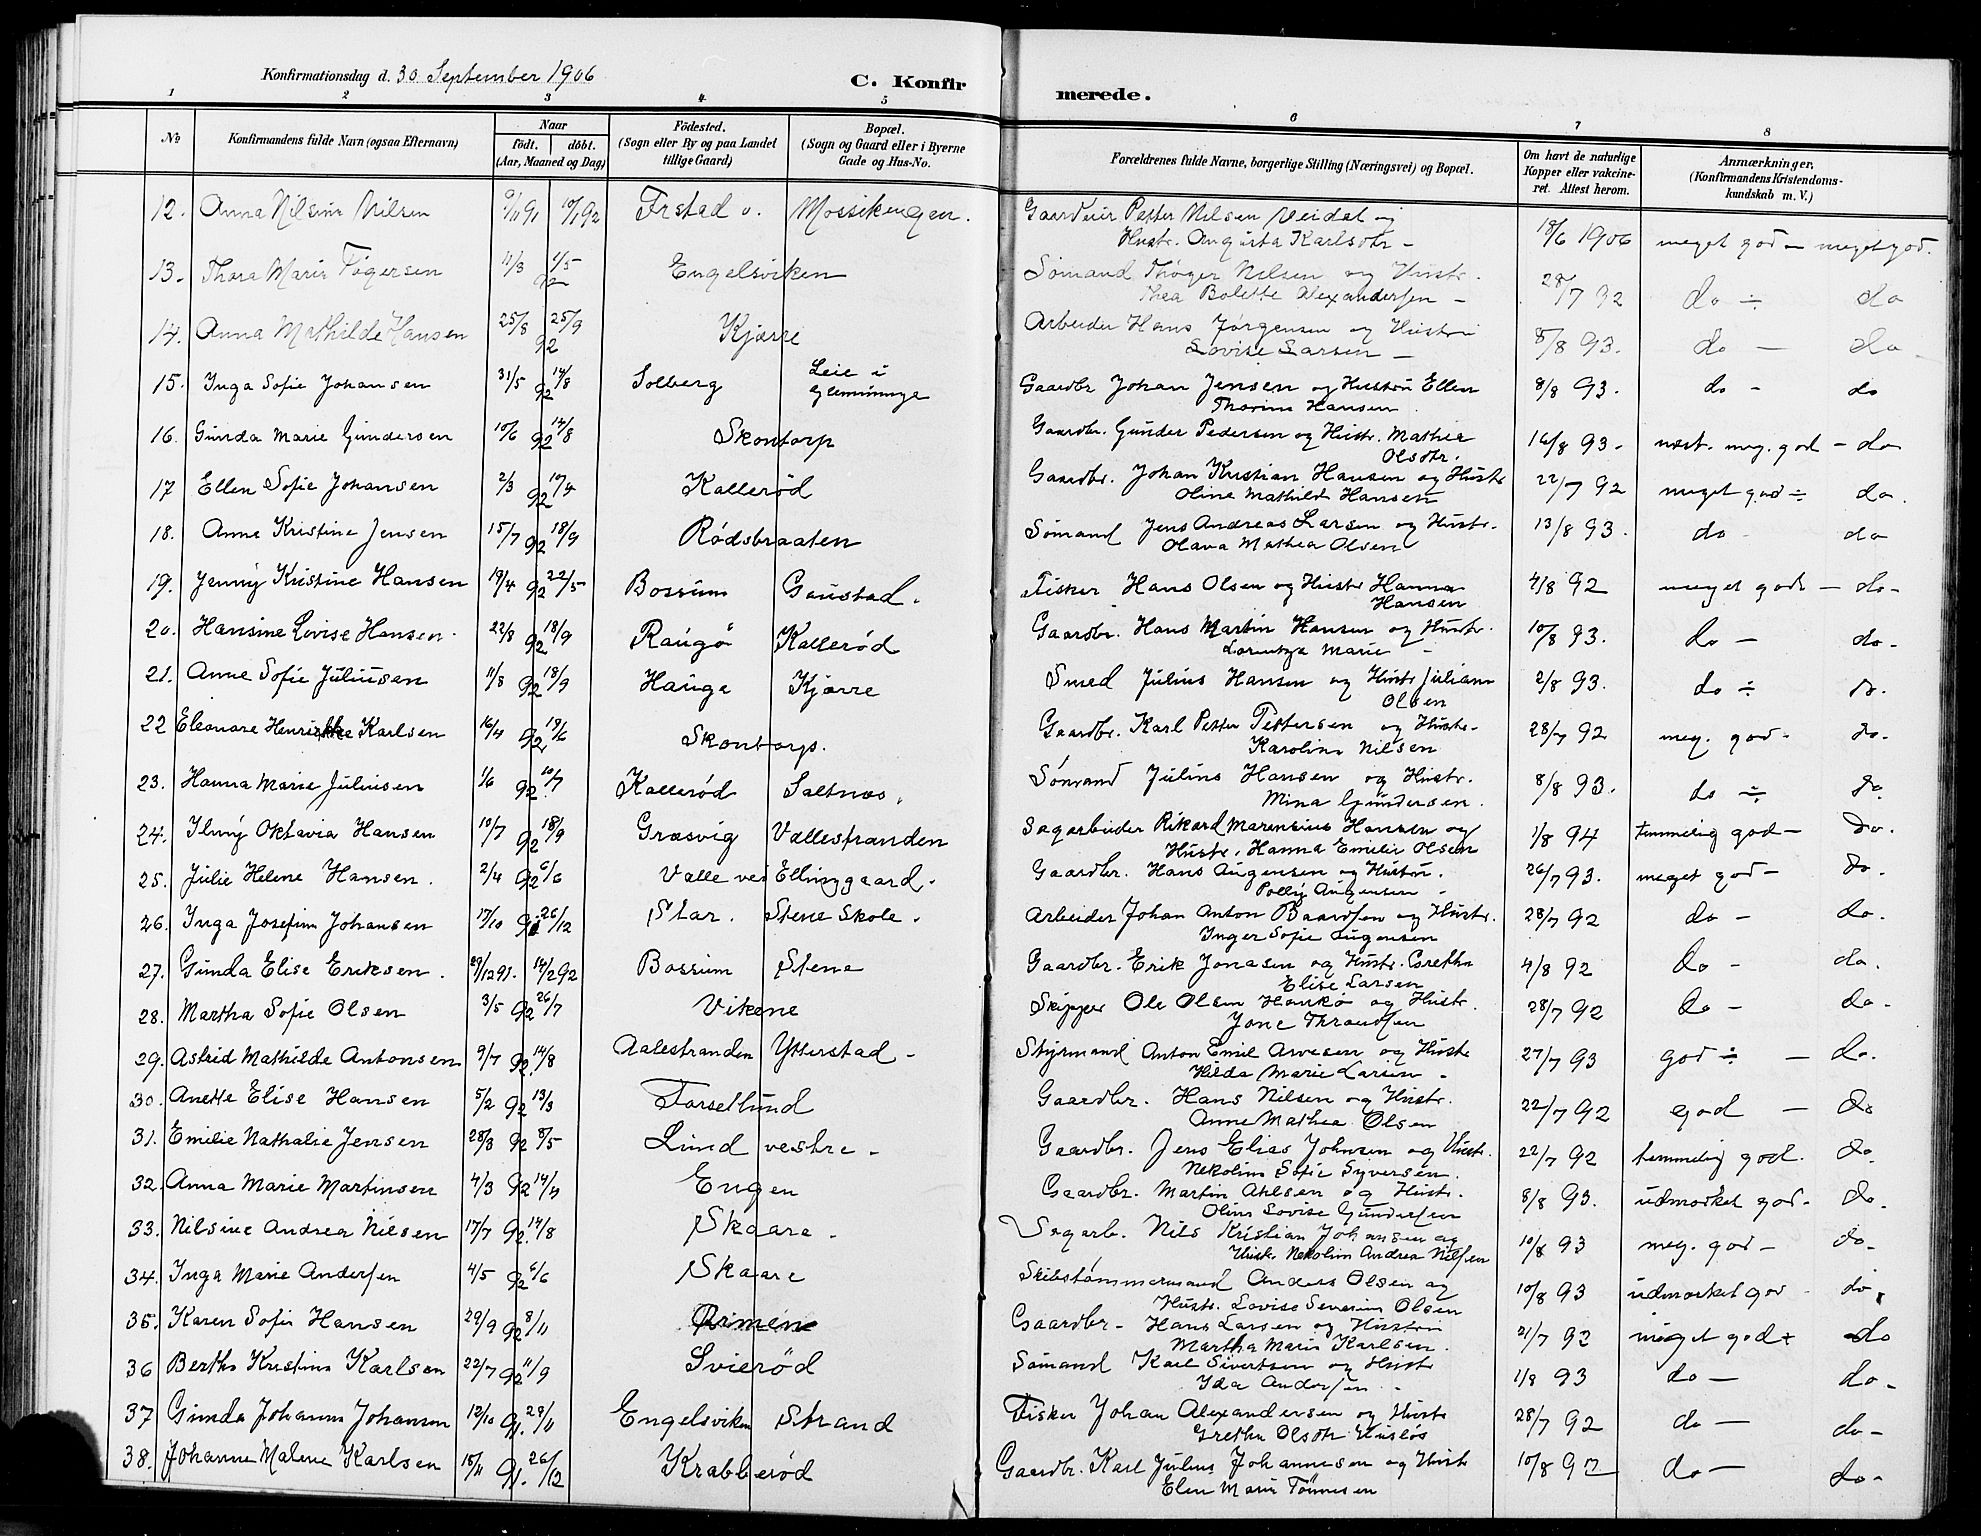 Konfirmationsdag d. 30 September 1906
C. Konfirmerede.
1 2 3 4 5 6 7 8
No
Konfirmandens fulde Navn (ogsaa Efternavn)
Naar
födt. döbt.
(Aar, Maaned og Dag)
Födested.
(Sogn eller By og paa Landet
tillige Gaard)
Bopæl.
(Sogn og Gaard eller i Byerne
Gade og Hus-No.
Forældrenes fulde Navne, borgerlige Stilling (Næringsvei) og Bopæl.
Om havt de naturlige
Kopper eller vakcine-
ret. Attest herom.
Anmærkninger.
(Konfirmandens Kristendoms-
kundskab m. V.)
12. Anna Nilsine Nilsen 9/11 91 10/1 92 Frstad o. Gaardeier Petter Nilsen Veidal og 18/6 1906 meget god — meget god.
Hustr. Augusta Karlsdtr —
13. Thora Marie Tøgersen 11/3 1/5 92 Engelsviken Sømand Thøger Nilsen og Hustr. 28/7 92 do ÷ do
Thea Bolette Alexandersen —
14. Anna Mathilde Hansen 25/8 25/9 92 Kjærre Arbeider Hans Jørgensen og Hustru 8/8 93. do — do
Lovise Larsen —
15. Inga Sofie Johansen 31/5 92 14/8 Solberg Leie i Gaardbr Johan Jensen og Hustru Ellen 8/8 93. do — do
Glemminge Thorine Hansen
16. Gunda Marie Gundersen 10/6 92 14/8 Skontorp Gaardbr. Gunder Pedersen og Hustr. Mathea 16/8 93. næst. meg. god — do
Olsdtr.
17 Ellen Sofie Johansen 2/3 92 10/4 Kallerød Gaardbr. Johan Kristian Hansen og Hustr 22/7 92 meget god ÷ do.
Oline Mathilde Hansen
18. Anne Kristine Jensen 15/7 92 18/9 Rødsbraaten Sømand Jens Andreas Larsen og Hustr. 13/8 93. do do
Olava Mathea Olsen
19. Jenny Kristine Hansen 19/4 92 22/5 Bossum Gaustad. Fisker Hans Olsen og Hustr Hanna 4/8 92 meget god — do
Hansen
20. Hansine Lovise Hansen. 22/8 92 18/9 Raugø Kallerød Gaardbr. Hans Martin Hansen og Hustr. 10/8 93. do — do
Lorentze Marie
21. Anne Sofie Juliusen 11/8 92 18/9 Hauge Kjærre Smed Julius Hansen og Hustr Juliane 2/8 93. do ÷ do.
Olsen
22 Eleonore Henrikke Karlsen 16/4 92 19/6 Skontorp. Gaardbr. Karl Petter Pettersen og Hustr. 28/7 92 meg. god. do.
Karoline Nilsen
23. Hanna Marie Juliusen 1/6 92. 10/7 Kallerød Saltnæs. Sømand Julius Hansen og Hustr. 8/8 93. do ÷ do.
Mina Gundersen.
24. Jenny Oktavia Hansen 10/7 92 18/9 Græsvig Vallestranden Sagarbeider Rikard Marensius Hansen og 1/8 94 temmelig god — do.
Hustr. Hanna Emilie Olsen
25. Julie Helene Hansen. 2/4 92 6/6 Valle ved Ellinggaard. Gaardbr. Hans Augensen og Hustru. 26/7 93. meget god — do.
Polly Augensen
26. Inga Josefine Johansen 17/10 91 26/12 Star. Stene Skole. Arbeider Johan Anton Baardsen og Hustr. 28/7 92 do — do.
Inger Sofie Augensen
27. Gunda Elise Eriksen. 29/12 91. 14/2 92 Bossum Stene Gaardbr. Erik Jonasen og Hustr. Grethe 4/8 92 do — do.
Elise Larsen
28. Martha Sofie Olsen 3/5 92 26/7 Vikene Skipper Ole Olsen Hankø og Hustr. 28/7 92 do — do
Jone Throndsen
29. Astrid Mathilde Antonsen 9/7 92. 14/8 Aalestranden Ytterstad Styrmand Anton Emil Arvesen og Hustr 27/7 93 god ÷ — do.
Hilda Marie Larsen
30. Anette Elise Hansen 5/2 92 13/3 Torsetlund Gaardbr. Hans Nilsen og Hustr. 22/7 92 god — do
Anne Mathea Olsen
31. Emilie Nathalie Jensen 28/3 92 8/5 Lund vestre. Gaardbr. Jens Elias Johnsen og Hustr. 22/7 92 temmelig god. do
Nekoline Sofie Syversen.
32. Anna Marie Martinsen 4/3 92 14/4 Engen Gaardbr. Martin Ahlsen og Hustr. 8/8 93. udmærket god. do.
Oline Lovise Gundersen
33. Nilsine Andrea Nilsen 17/7 92. 14/8 Skaare. Sagarb. Nils Kristian Johansen og 10/8 93 meg. god — do.
Hustr Nekoline Andrea Nilsen
34. Inga Marie Andersen 4/5 92 6/6 Skaare Skibstømmermand Anders Olsen og 10/8 93 udmærket god do.
Hustr. Lovise Severine Olsen
35. Karen Sofie Hansen 29/9 92 8/11 Rimen Gaardbr. Hans Larsen og Hustru 21/7 92 meget god do
Martha Marie Karlsen.
36 Berthe Kristine Karlsen 22/7 92 11/9 Svierød Sømand Karl Sivertsen og Hustr 1/8 93 do — do.
Ida Andersen
37 Gunda Johanne Johansen 12/10 91. 29/11 Engelsviken Strand Fisker Johan Alexandersen og Hustr 28/7 92 do — do —
Grethe Olsdtr Husløs
38. Johanne Malene Karlsen 15/11 91. 26/12 Krabberød Gaardbr. Karl Julius Johannesen og Hustr 10/8 92 do — do.
Elen Marie Tønnesen